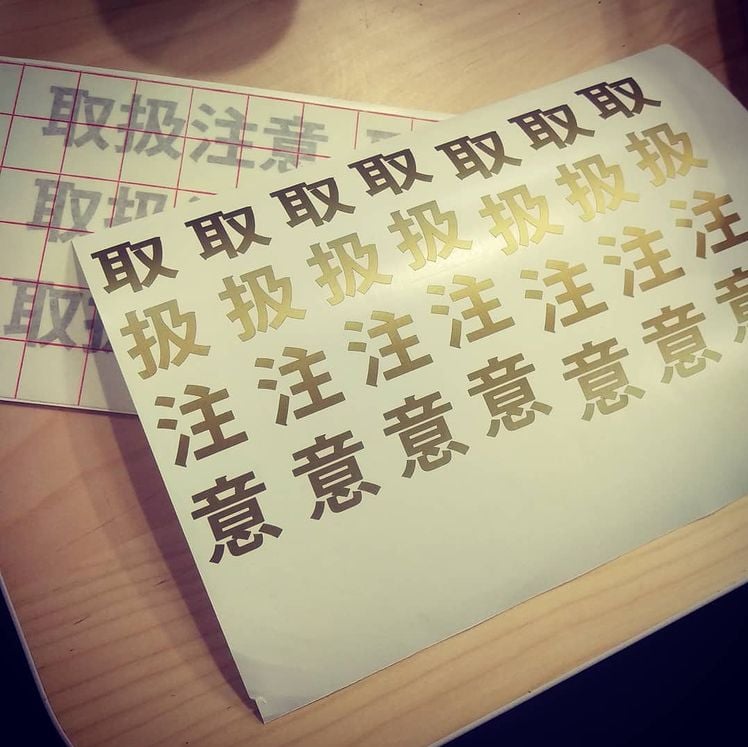 取扱注意
取扱
取扱
取取取取取取取
扱扱扱扱扱扱扱
注注注注注注注
意意意意意意意